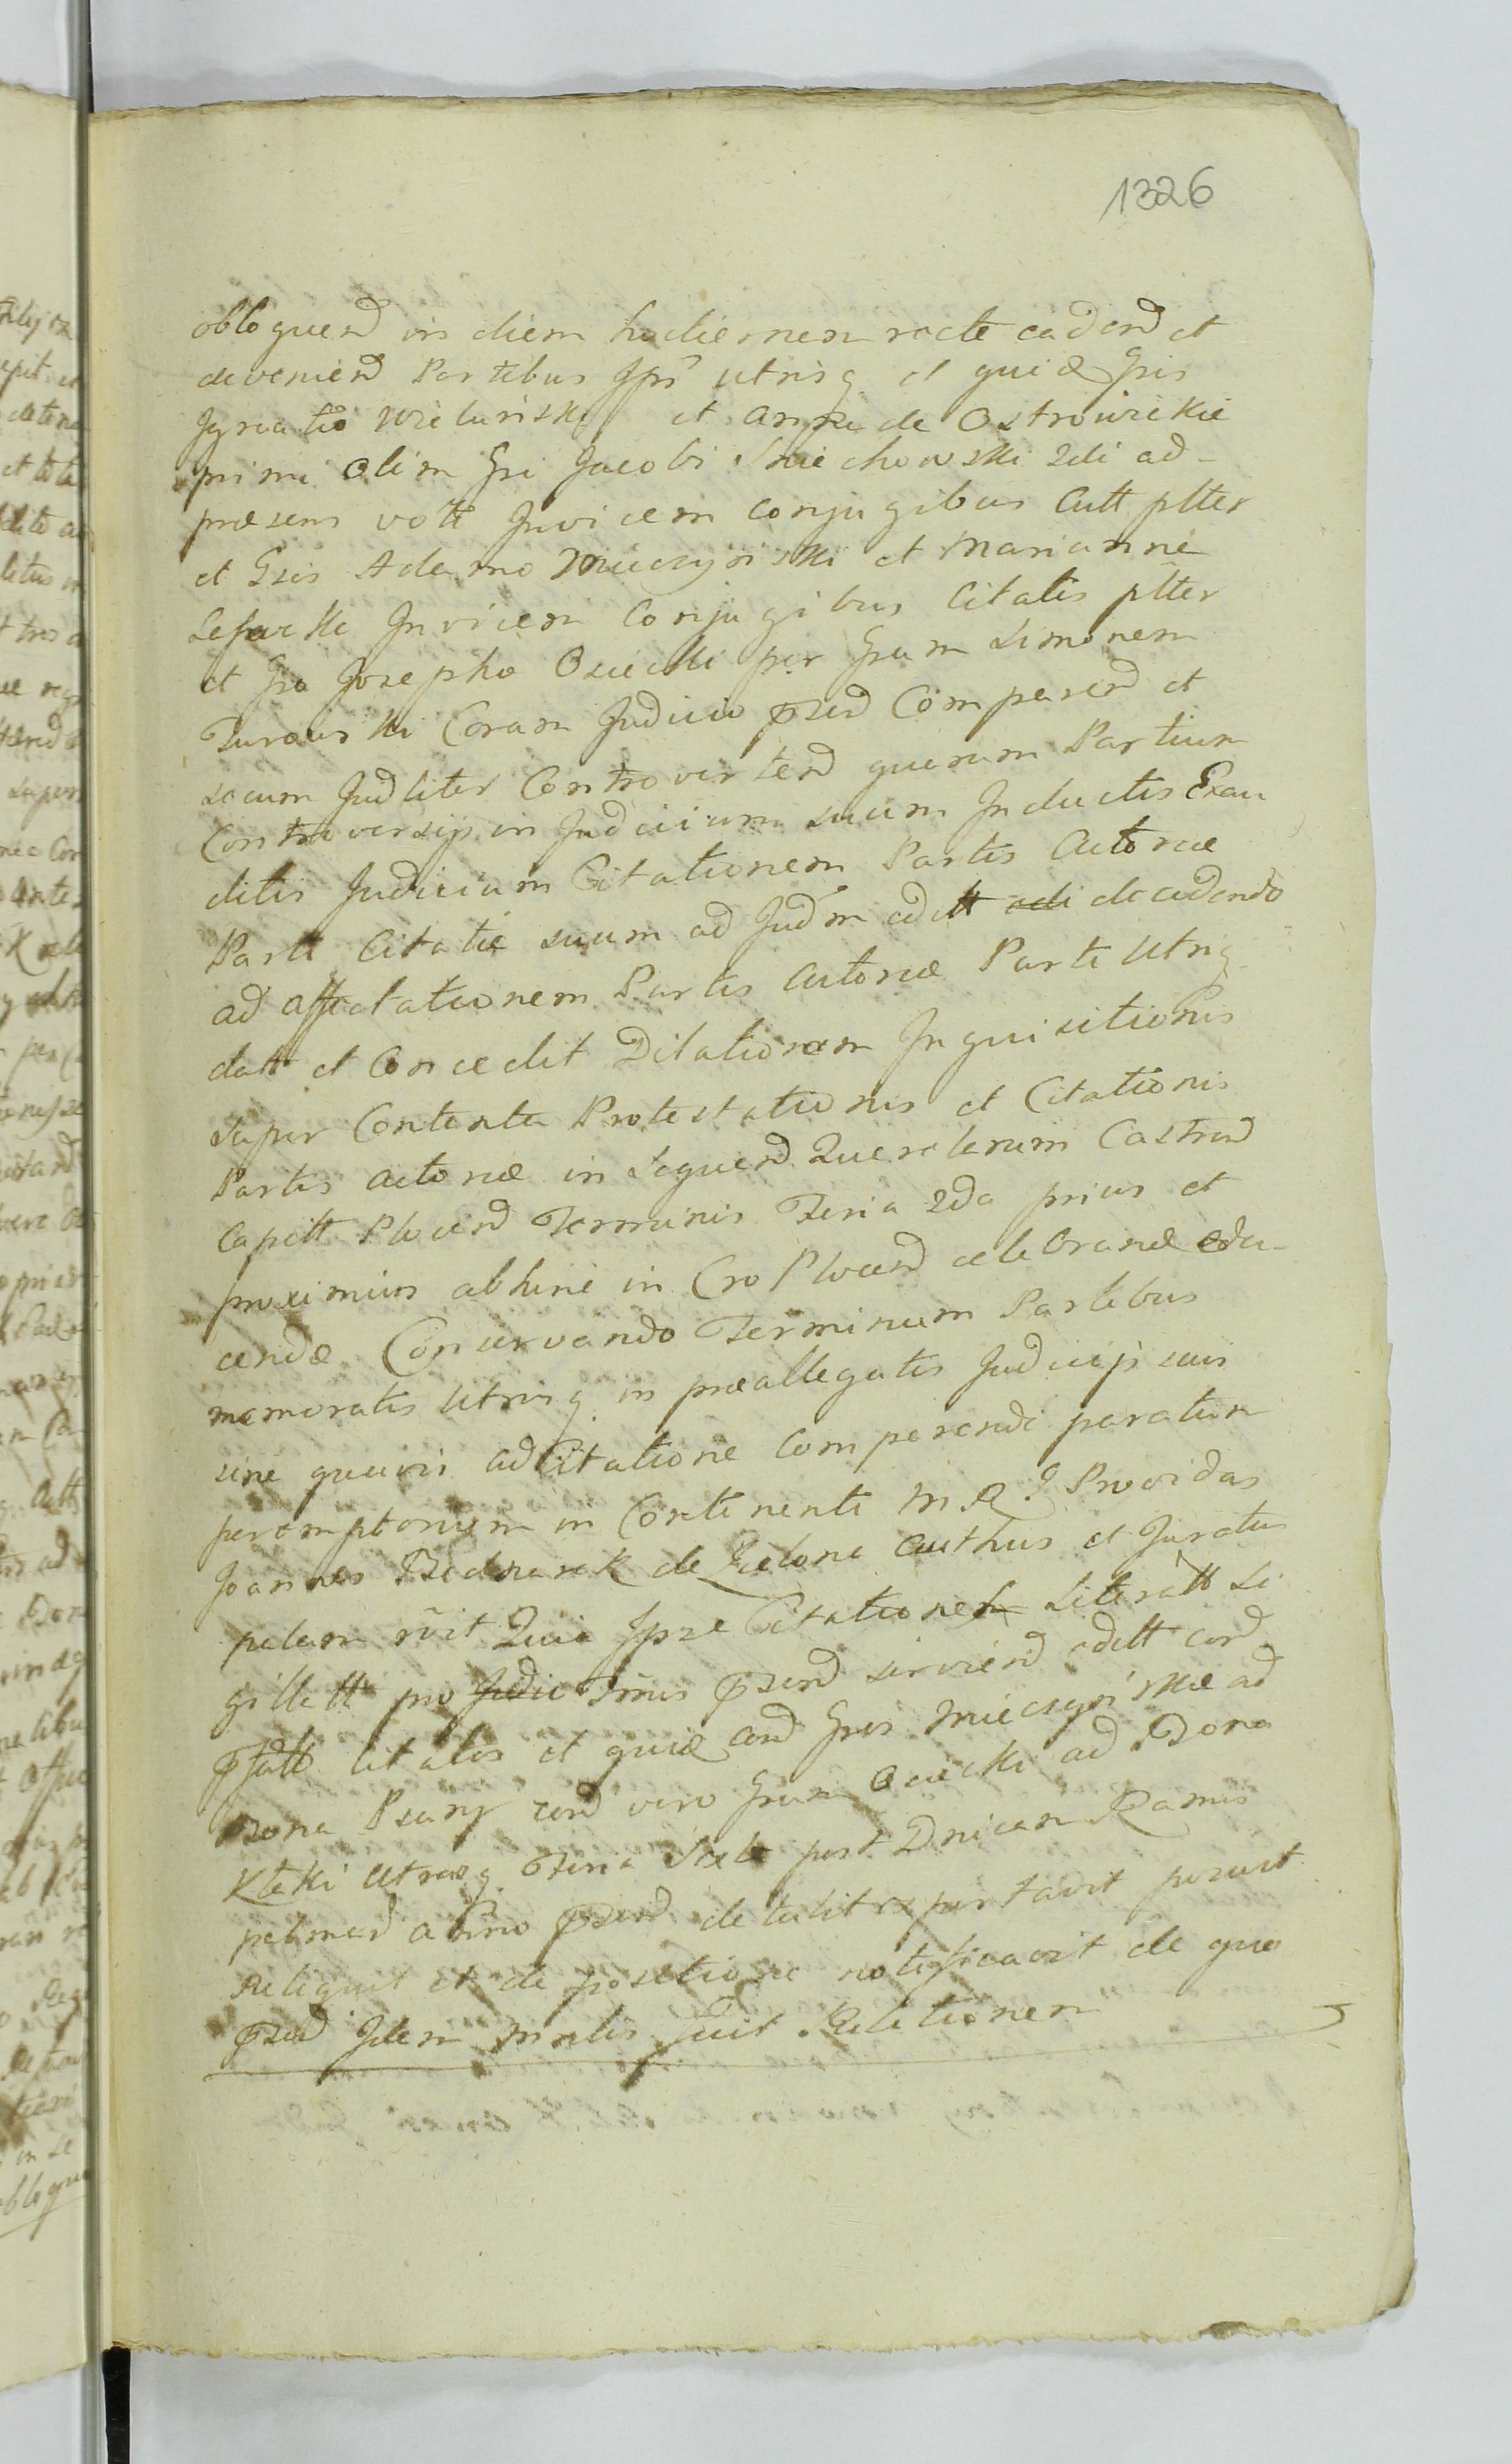 1326
obloquend in diem hodiernem recte cadend et
deveniend Partibus Ips utrisq et quidę Gsis
Ignatio Wieluński et Anna de Ostrowickie
primi olim Gsi Jacobi Smiechowski 2di ad-
præsens voti Invicem conjugibus Citt pltter
et Gsis Adamo Mieczyński et Marianne
Invicem Conjugibus Citatis pltter
et Gso Josepho Osiecki per Gsum Simonem
Turowski Coram Judicio pnd Comparend et
secum Judliter Controvertend quarum Partium
Controversijs in Judicium suum Inductis Exau
ditis Judicium Citationem Partis Actoreæ
Parti Citatæ suum ad Judm edtt decedendo
ad affectationem Partis Actoreæ Parti Utriq
datt et Concedit Dilationem Inquisitionis
super Contenta Protestationis et Citationis
Partis Actoreæ in Sequend Querelarum Castrend
Capitt Plocend Terminis Feria 2da prius et
proximius abhinc in Cro Plocend celebrand edu-
cendæ Conservando Terminum Partibus
memoratis Utrisq in præallegatis Judicijs suis
sine quavis adCitatione comparendi paratum
peremptorium in Continenti M. R. Providus
Joannes Bednarek de Zielona Authus et Juratus
palam rūit Quia Ipse Citationes Literatt Si
gillatt pro Tmis pnd serviend edtt cond
Citatos et quidę cond Gsos Mieczyńskie ad
Bona Psary cond vero Gsum Osiecki ad Bona
Kteki Utrasq Feria Sextt post Dnicam Ramis
palmar Anno pnd detulit exportavit posuit
reliquit et de positione notificavit de quo
pnd Idem Mnlis fuit Relationem